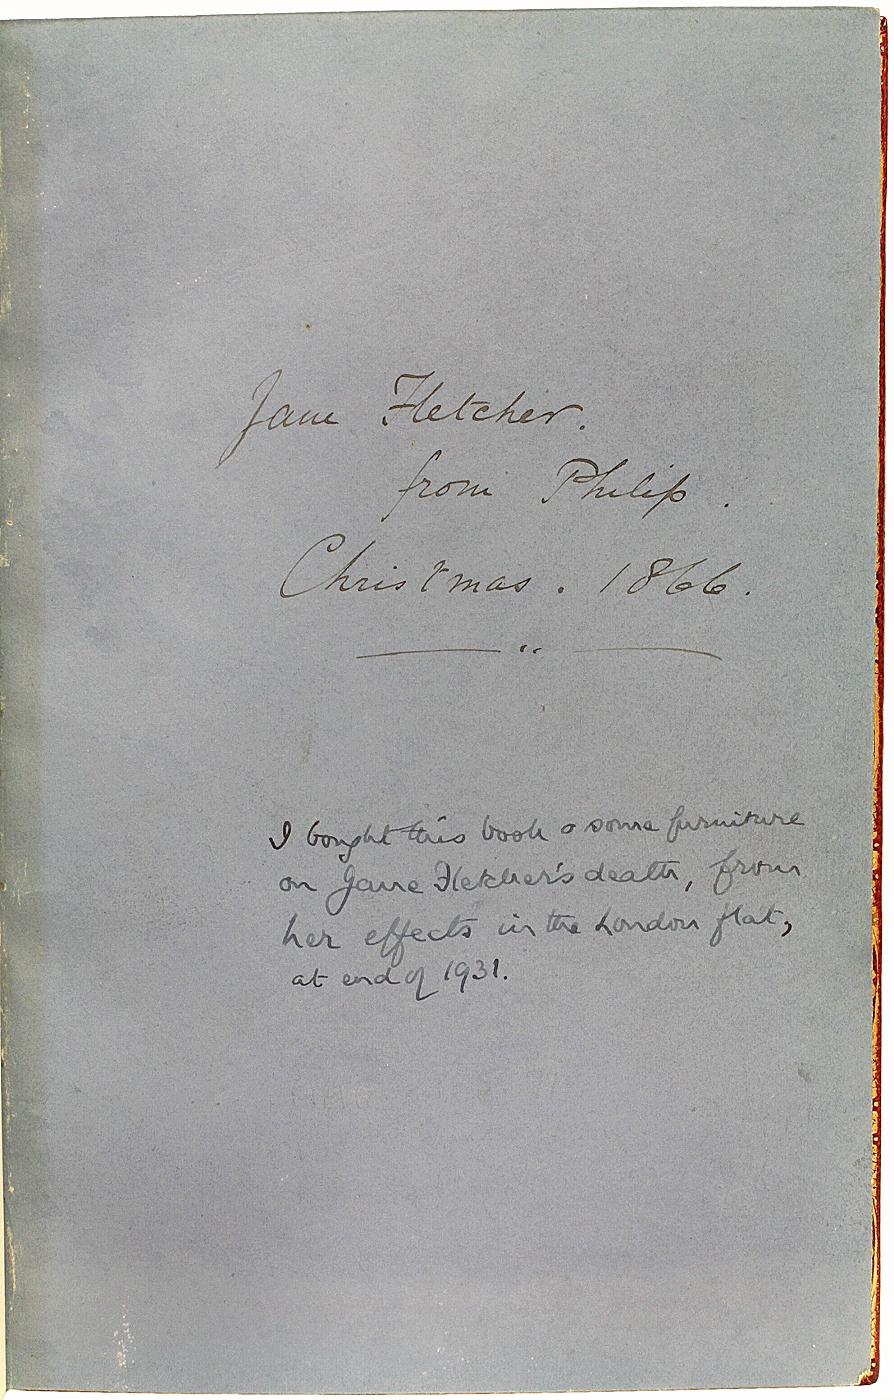 Jane Fletcher.
from Philip.
Christmas. 1866.
I bought this book & some furniture
on Jane Fletcher's death, from
her effects in the London flat,
at end of 1931.